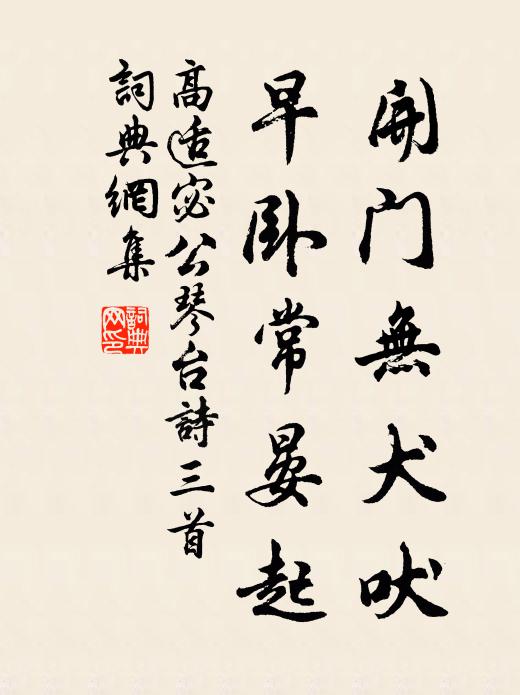 開门無犬吠
早卧常晏起
高适宓公琴台詩三首
詞典網集
詞典
网印